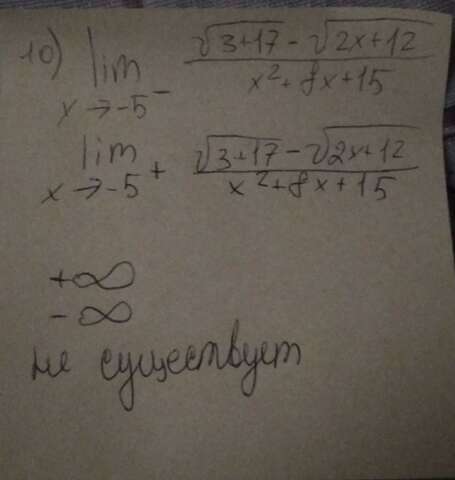 10) lim x→-5- (√3+17 - √2x+12)/(x²+8x+15)
lim x→-5+ (√3+17 - √2x+12)/(x²+8x+15)
+∞
-∞
не существует